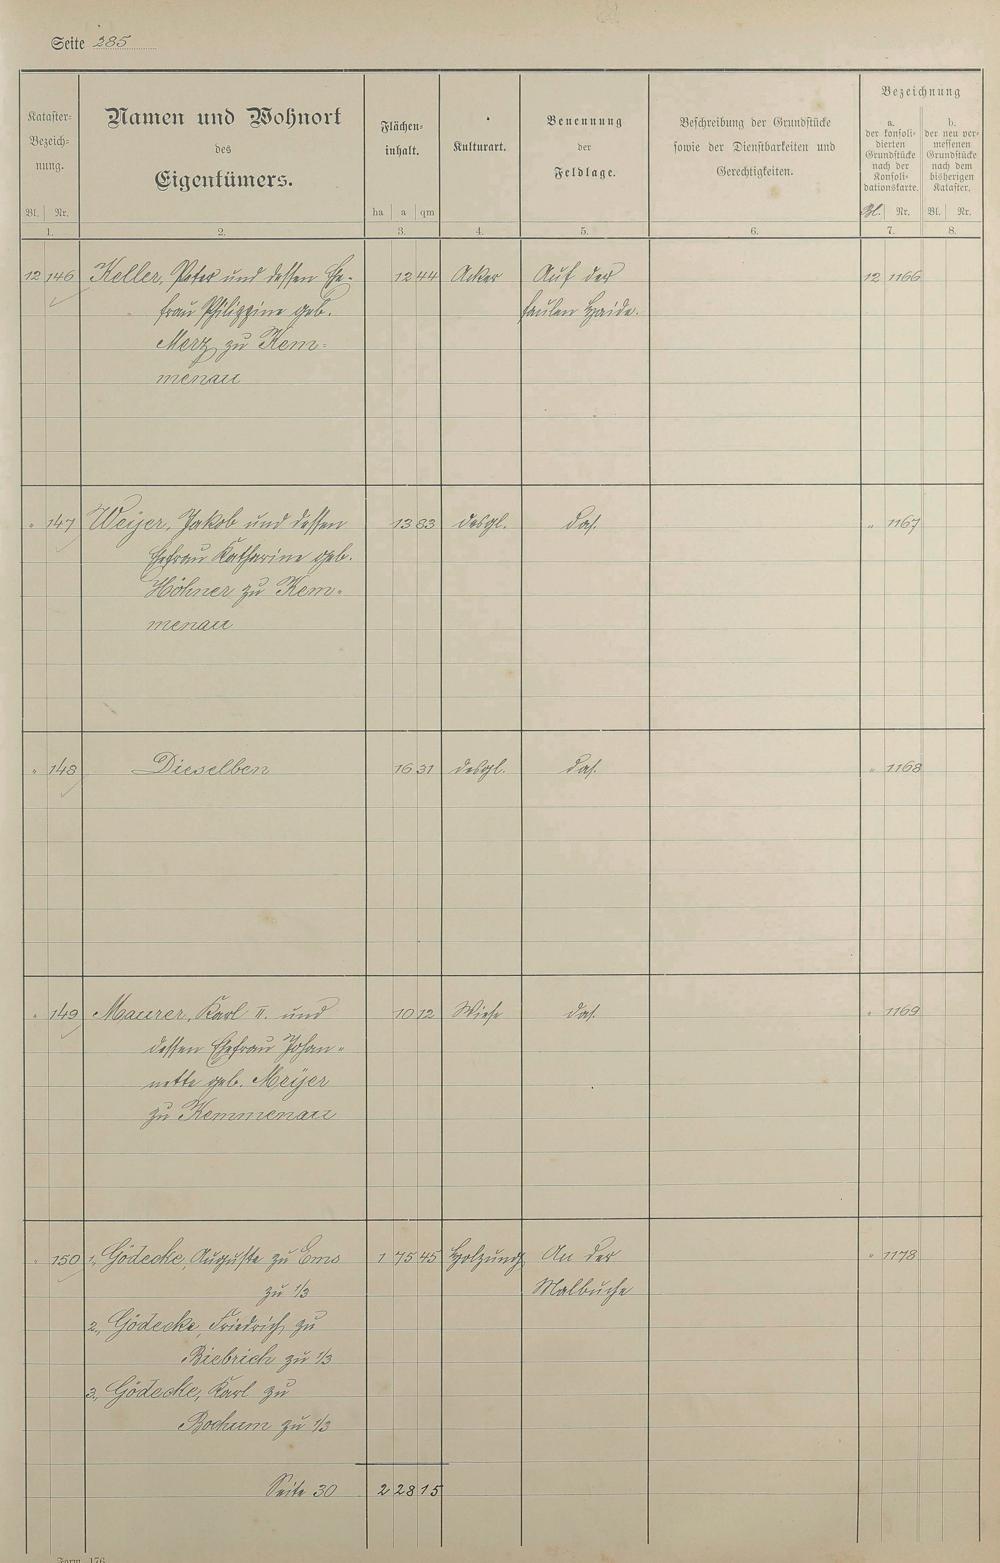 Seite 285
Kataster-
Bezeich-
nung.
Bl. Nr.
1.
Namen und Wohnort
des
Eigentümers.
2.
Flächen-
inhalt.
ha a qm
3.
Kulturart.
4.
Benennung
der
Feldlage.
5.
Beschreibung der Grundstücke
sowie der Dienstbarkeiten und
Gerechtigkeiten.
6.
Bezeichnung
a.
der konsoli-
dierten
Grundstücke
nach der
Konsoli-
dationskarte.
Bl. Nr.
7.
b.
der neu ver-
messenen
Grundstücke
nach dem
bisherigen
Kataster.
Bl. Nr.
8.
12 146 Keller, Peter und dessen Ehe- 12 44 Acker Auf der 12 1166
frau Philippine geb. faulen Haide.
Merz zu Kem-
menau
" 147 Weijer, Jakob und dessen 13 83 desgl. das. " 1167
Ehefrau Katharine geb.
Höhner zu Kem-
menau
" 148 Dieselben 16 31 desgl. das. " 1168
" 149 Maurer, Karl II. und 10 12 Wiese das. " 1169
dessen Ehefrau Johan-
nette geb. Meijer
zu Kemmenau
" 150 1, Gödecke, Auguste zu Ems 1 75 45 Holzung An der " 1178
zu 1/3 Malbuche
2, Gödecke, Friedrich zu
Biebrich zu 1/3
3, Gödecke, Karl zu
Bochum zu 1/3
Seite 30 2 28 15
Form. 176